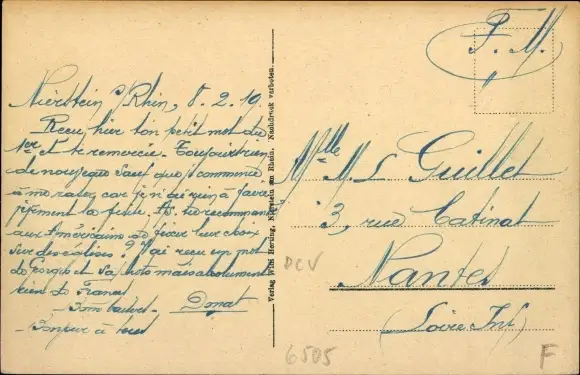 Nierstein s/Rhin, 8. 2. 19.
Reçu, hier ton petit mot du
1er et te remercie. Toujours rien
de nouveau sauf que je commence
à me raser, car je n'ai rien à faire
la
aux Américains de leur choix
sur des églises? J'ai reçu un mot
de et sa photo mais absolument
rien de France
Donat
Bonjour à tous
Verlag Wilh Hertung, Nierstein am Rhein. Nachdruck verboten.
F. M.
Mlle M. L Guillet
3, rue Catinat
Nantes
(Loire Inf)
DCV
6505
F